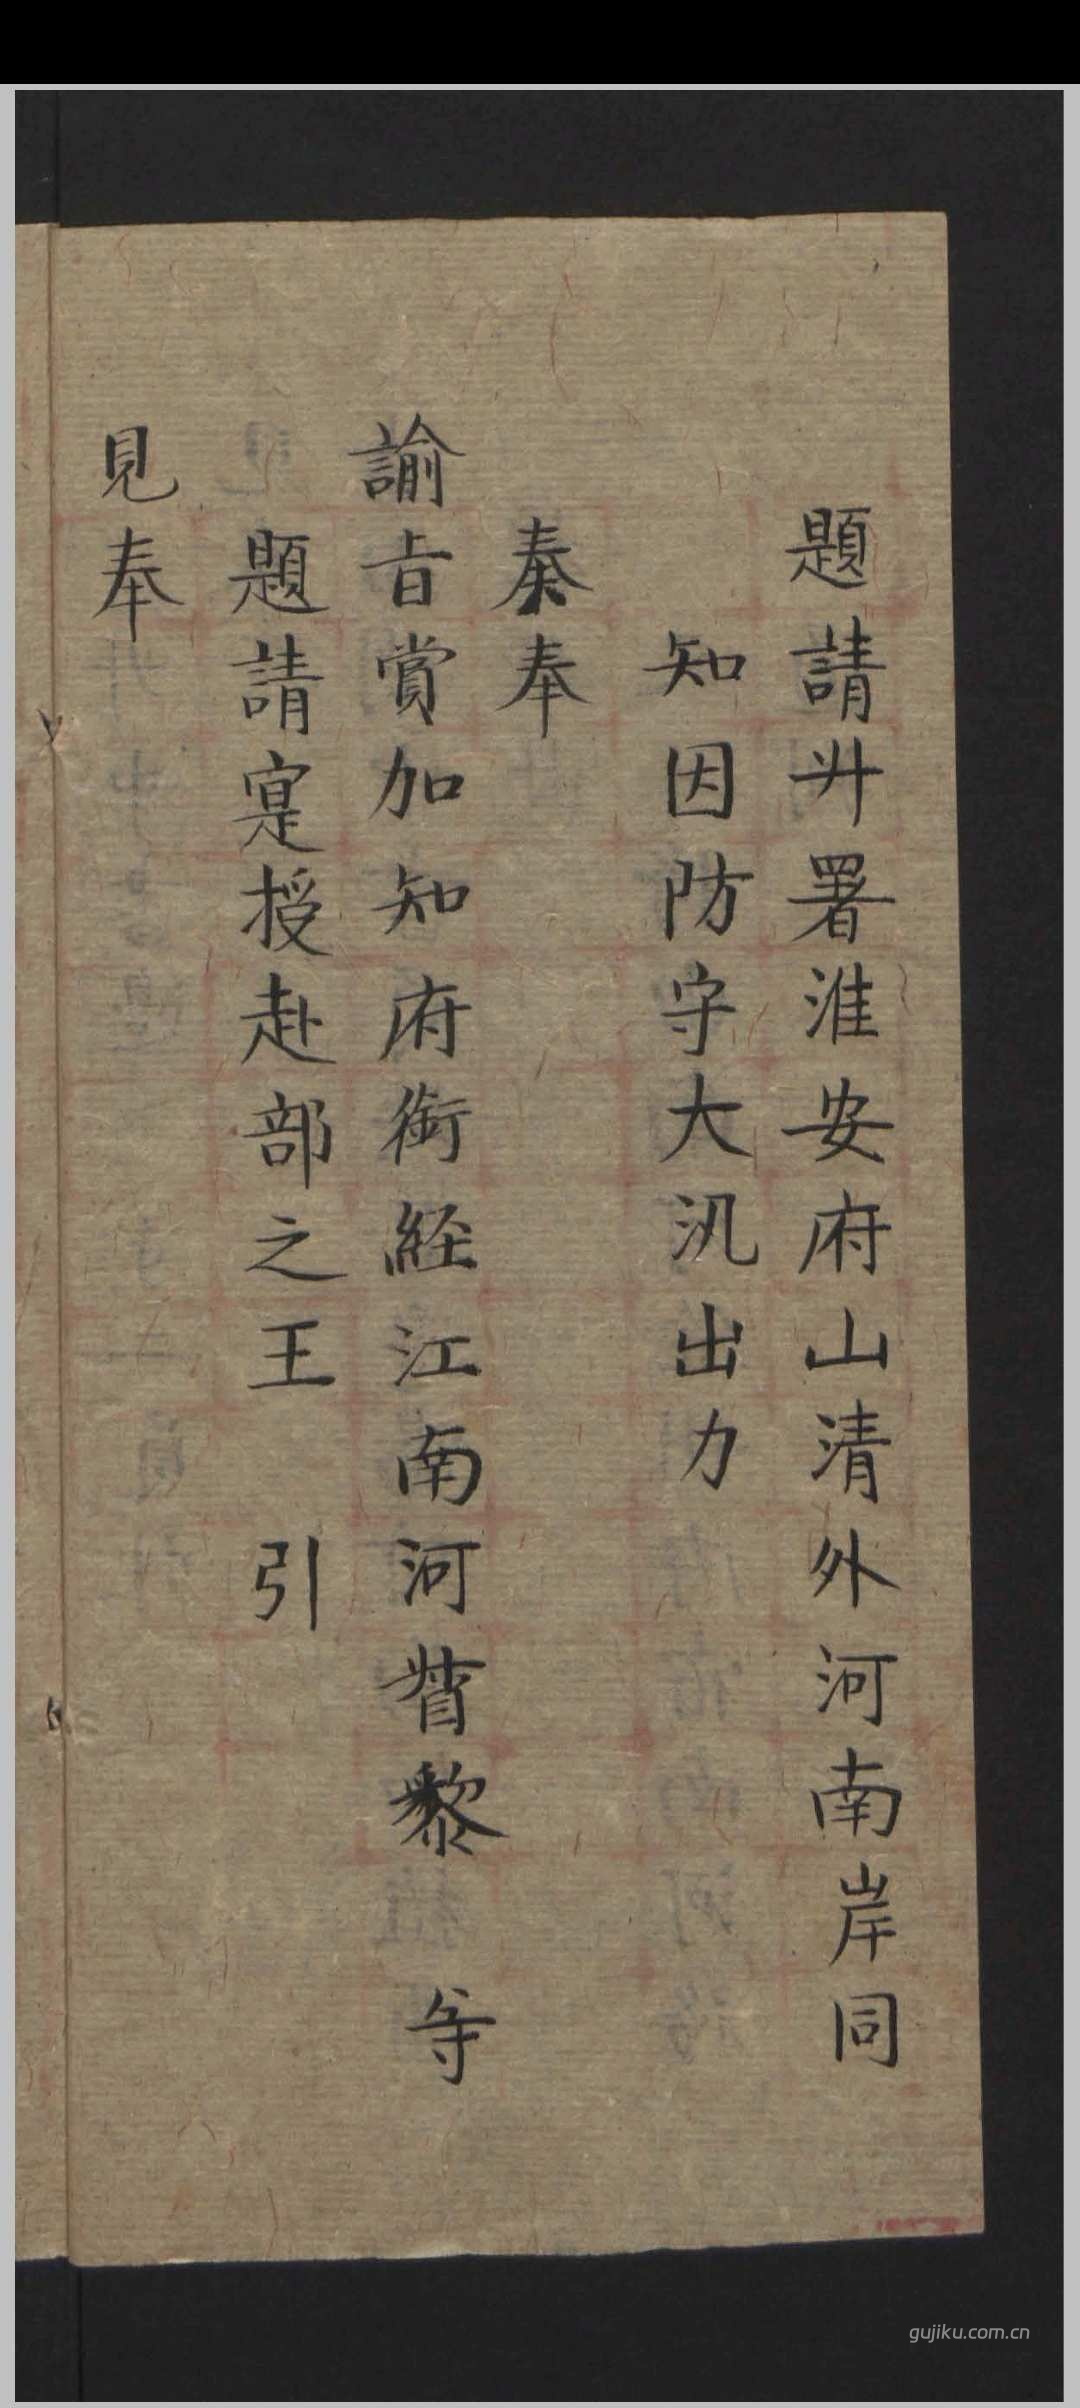 題請升署淮安府山清外河南岸同
知因防守大汛出力
奏奉
諭旨賞加知府銜経江南河督黎 等
題請寔授赴部之王 引
見奉
gujiku.com.cn